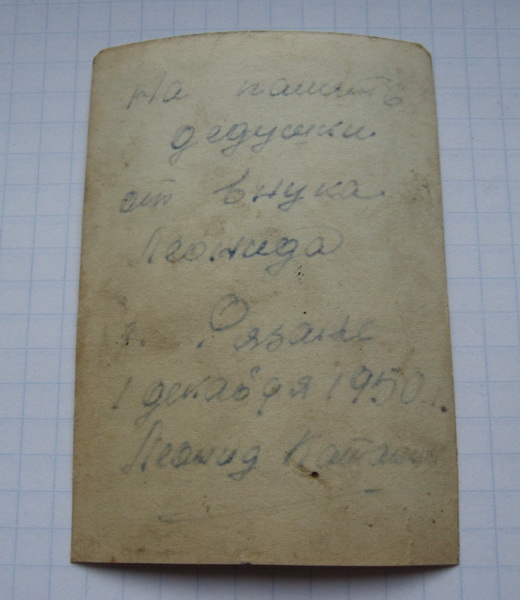 На память
дедушки
от внука
Леонида
г. Рязань
1 декабря 1950 г.
Леонид